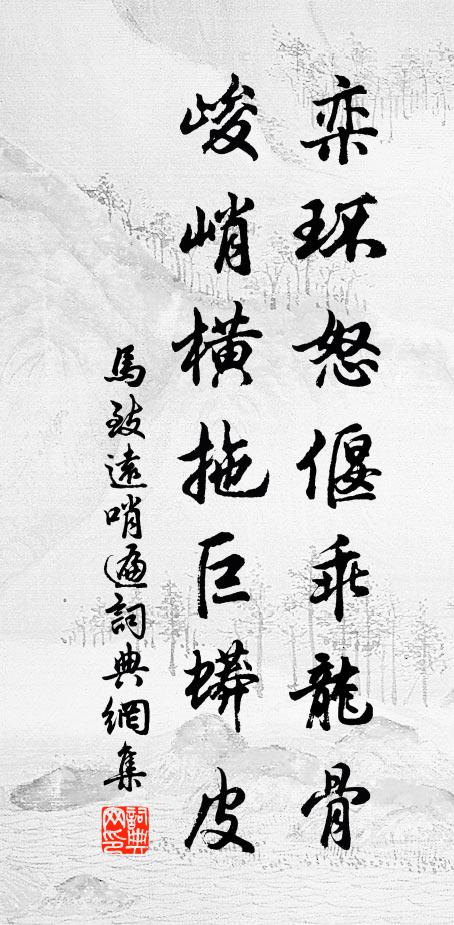 栾环怒偃乖龍骨
峻峭橫拖巨蟒皮
馬致遠哨遍詞典網集
詞典网印